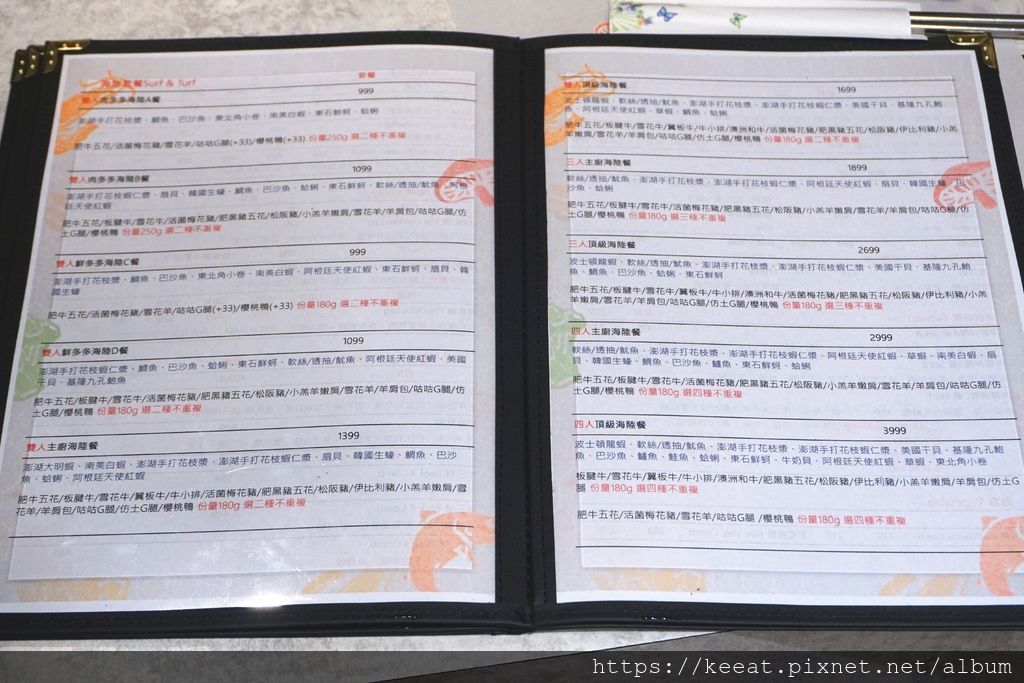 海陸套餐Surf & Turf 套餐
雙人肉多多海陸A餐 999
澎湖手打花枝漿、鯛魚、巴沙魚、東北角小卷、南美白蝦、東石鮮蚵、蛤蜊
肥牛五花/活菌梅花豬/雪花羊/咕咕G腿(+33)/櫻桃鴨(+33) 份量250g 選二種不重複
雙人肉多多海陸B餐 1099
澎湖手打花枝蝦仁漿、扇貝、韓國生蠔、鯛魚、巴沙魚、蛤蜊、東石鮮蚵、軟絲/透抽/魷魚、阿根
廷天使紅蝦
肥牛五花/板腱牛/雪花牛/活菌梅花豬/肥黑豬五花/松阪豬/小羔羊嫩肩/雪花羊/羊肩包/咕咕G腿/仿
土G腿/櫻桃鴨 份量250g 選二種不重複
雙人鮮多多海陸C餐 999
澎湖手打花枝漿、鯛魚、巴沙魚、東北角小卷、南美白蝦、阿根廷天使紅蝦、東石鮮蚵、扇貝、韓
國生蠔
肥牛五花/活菌梅花豬/雪花羊/咕咕G腿(+33)/櫻桃鴨(+33) 份量180g 選二種不重複
雙人鮮多多海陸D餐 1099
澎湖手打花枝蝦仁漿、鯛魚、巴沙魚、蛤蜊、東石鮮蚵、軟絲/透抽/魷魚、阿根廷天使紅蝦、美國
干貝、基隆九孔鮑魚
肥牛五花/板腱牛/雪花牛/活菌梅花豬/肥黑豬五花/松阪豬/小羔羊嫩肩/雪花羊/羊肩包/咕咕G腿/仿
土G腿/櫻桃鴨 份量180g 選二種不重複
雙人主廚海陸餐 1399
澎湖大明蝦、南美白蝦、澎湖手打花枝漿、澎湖手打花枝蝦仁漿、扇貝、韓國生蠔、鯛魚、巴沙
魚、蛤蜊、阿根廷天使紅蝦
肥牛五花/板腱牛/雪花牛/翼板牛/牛小排/活菌梅花豬/肥黑豬五花/松阪豬/伊比利豬/小羔羊嫩肩/雪
花羊/羊肩包/咕咕G腿/仿土G腿/櫻桃鴨 份量180g 選二種不重複
雙人頂級海陸餐 1699
波士頓龍蝦、軟絲/透抽/魷魚、澎湖手打花枝漿、澎湖手打花枝蝦仁漿、美國干貝、基隆九孔鮑
魚、鯛魚、巴沙魚、東石鮮蚵、牛奶貝、阿根廷天使紅蝦、草蝦、鯛魚、蛤蜊
肥牛五花/板腱牛/雪花牛/翼板牛/牛小排/澳洲和牛/活菌梅花豬/肥黑豬五花/松阪豬/伊比利豬/小羔
羊嫩肩/雪花羊/羊肩包/咕咕G腿/仿土G腿/櫻桃鴨 份量180g 選二種不重複
三人主廚海陸餐 1899
軟絲/透抽/魷魚、澎湖手打花枝漿、澎湖手打花枝蝦仁漿、阿根廷天使紅蝦、扇貝、韓國生蠔、巴沙
魚、蛤蜊
肥牛五花/板腱牛/雪花牛/活菌梅花豬/肥黑豬五花/松阪豬/小羔羊嫩肩/雪花羊/羊肩包/咕咕G腿/仿
土G腿/櫻桃鴨 份量180g 選三種不重複
三人頂級海陸餐 2699
波士頓龍蝦、軟絲/透抽/魷魚、澎湖手打花枝漿、澎湖手打花枝蝦仁漿、美國干貝、基隆九孔鮑
魚、鯛魚、巴沙魚、蛤蜊、東石鮮蚵
肥牛五花/板腱牛/雪花牛/翼板牛/牛小排/澳洲和牛/活菌梅花豬/肥黑豬五花/松阪豬/伊比利豬/小羔
羊嫩肩/雪花羊/羊肩包/咕咕G腿/仿土G腿/櫻桃鴨 份量180g 選三種不重複
四人主廚海陸餐 2999
軟絲/透抽/魷魚、澎湖手打花枝漿、澎湖手打花枝蝦仁漿、阿根廷天使紅蝦、草蝦、南美白蝦、扇
貝、韓國生蠔、鯛魚、巴沙魚、鱸魚、東石鮮蚵、蛤蜊
肥牛五花/板腱牛/雪花牛/活菌梅花豬/肥黑豬五花/松阪豬/小羔羊嫩肩/雪花羊/羊肩包/咕咕G腿/仿
土G腿/櫻桃鴨 份量180g 選四種不重複
四人頂級海陸餐 3999
波士頓龍蝦、軟絲/透抽/魷魚、澎湖手打花枝漿、澎湖手打花枝蝦仁漿、美國干貝、基隆九孔鮑
魚、巴沙魚、鱸魚、鮭魚、蛤蜊、東石鮮蚵、牛奶貝、阿根廷天使紅蝦、草蝦、東北角小卷
板腱牛/雪花牛/翼板牛/牛小排/澳洲和牛/肥黑豬五花/松阪豬/伊比利豬/小羔羊嫩肩/羊肩包/仿土G
腿 份量180g 選四種不重複
肥牛五花/活菌梅花豬/雪花羊/咕咕G腿 /櫻桃鴨 份量180g 選四種不重複
https://keeat.pixnet.net/album